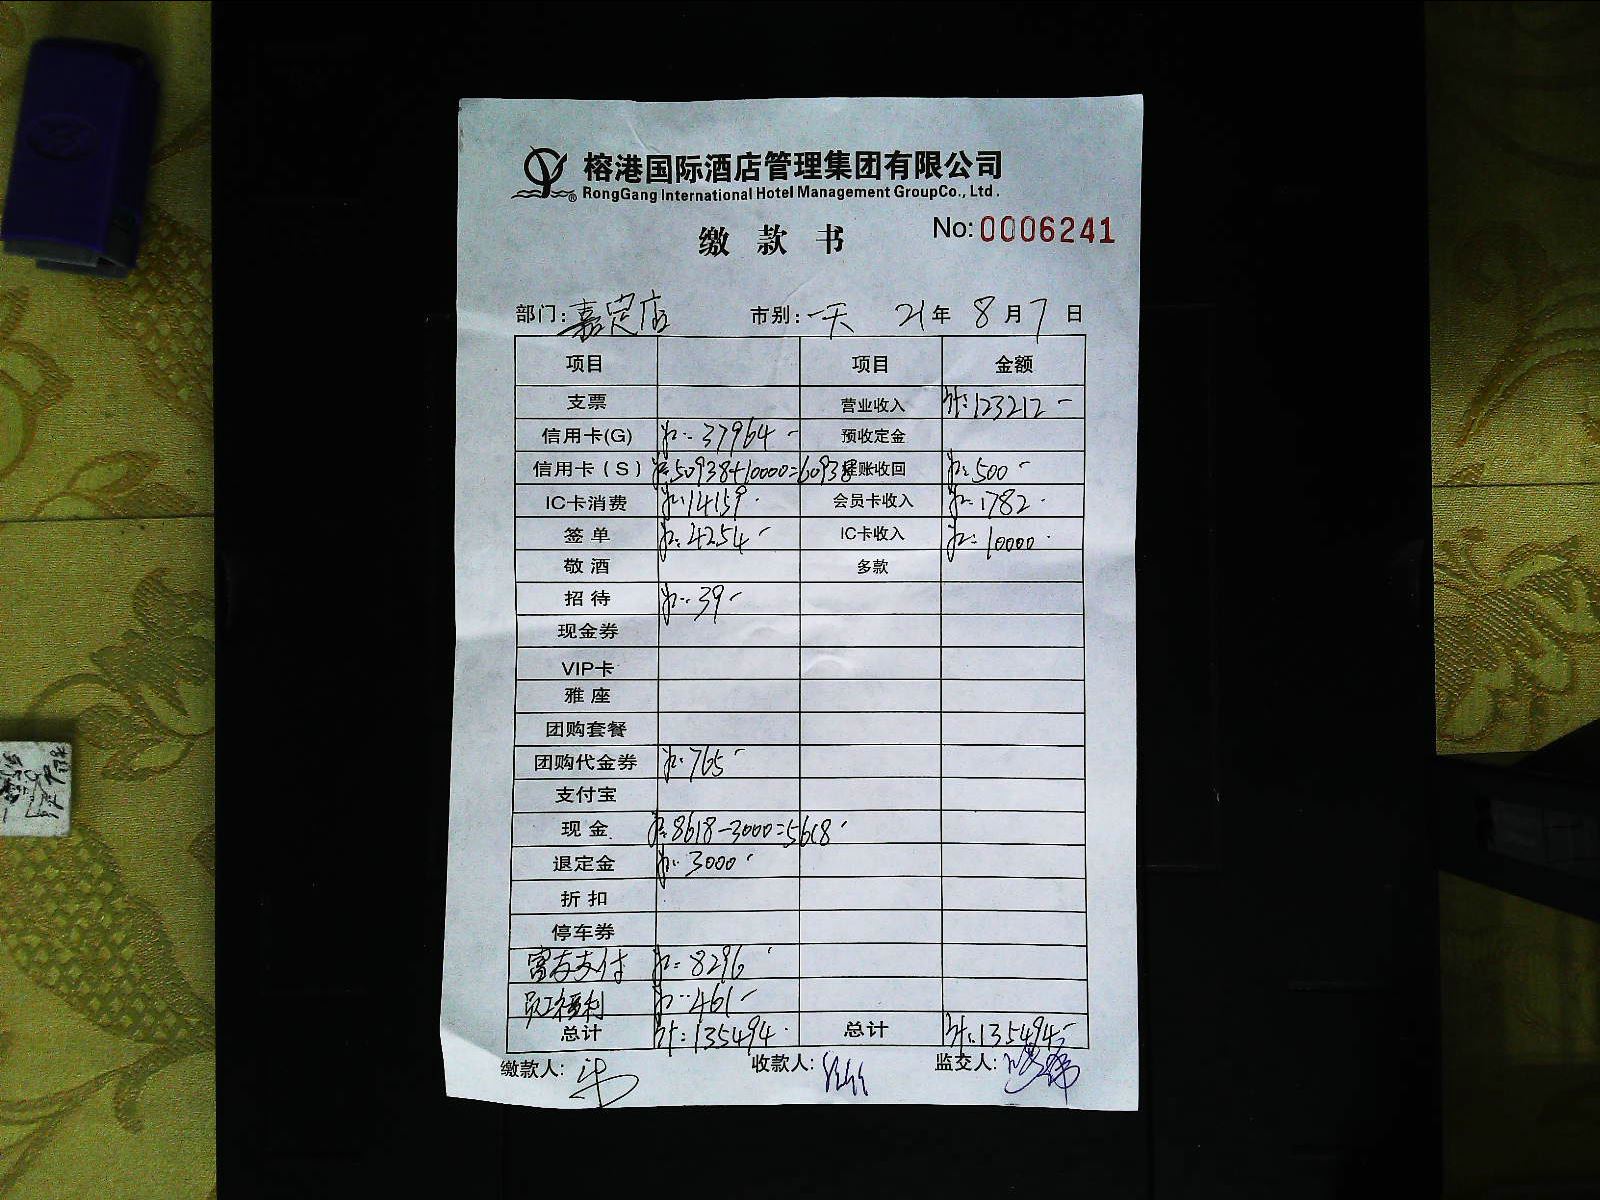 榕港国际酒店管理集团有限公司
RongGang International Hotel Management GroupCo., Ltd.
缴款书 No:0006241
部门:嘉定店 市别:一天 21年8月7日
项目 项目 金额
支票 营业收入 计:123212-
信用卡(G) 37964- 预收定金
信用卡(S) 50938+10000=60938 挂账收回 500-
IC卡消费 14159. 会员卡收入 1782.
签单 4254- IC卡收入 10000.
敬酒 多款
招待 39-
现金券
VIP卡
雅座
团购套餐
团购代金券 765-
支付宝
现金 8618-3000=5618
退定金 3000
折扣
停车券
富友支付 8296
员工福利 461-
总计 计:135494. 总计 计:135494-
缴款人: 收款人: 监交人: